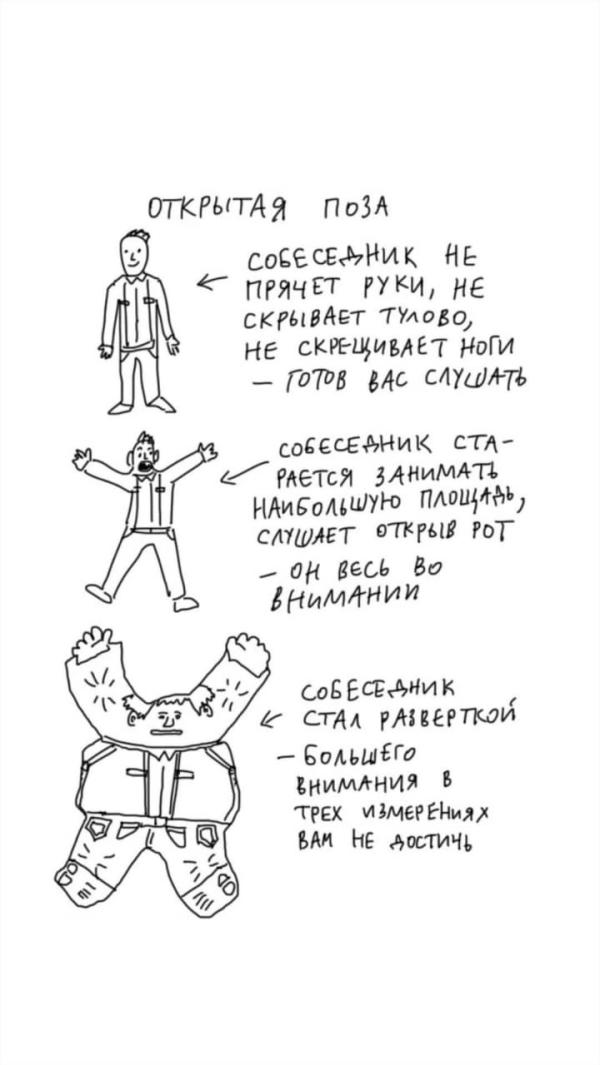 ОТКРЫТАЯ ПОЗА
СОБЕСЕДНИК НЕ
ПРЯЧЕТ РУКИ, НЕ
СКРЫВАЕТ ТУЛОВО,
НЕ СКРЕЩИВАЕТ НОГИ
– ГОТОВ ВАС СЛУШАТЬ
СОБЕСЕДНИК СТА-
РАЕТСЯ ЗАНИМАТЬ
НАИБОЛЬШУЮ ПЛОЩАДЬ,
СЛУШАЕТ ОТКРЫВ РОТ
– ОН ВЕСЬ ВО
ВНИМАНИИ
СОБЕСЕДНИК
СТАЛ РАЗВЕРТКОЙ
– БОЛЬШЕГО
ВНИМАНИЯ В
ТРЕХ ИЗМЕРЕНИЯХ
ВАМ НЕ ДОСТИЧЬ